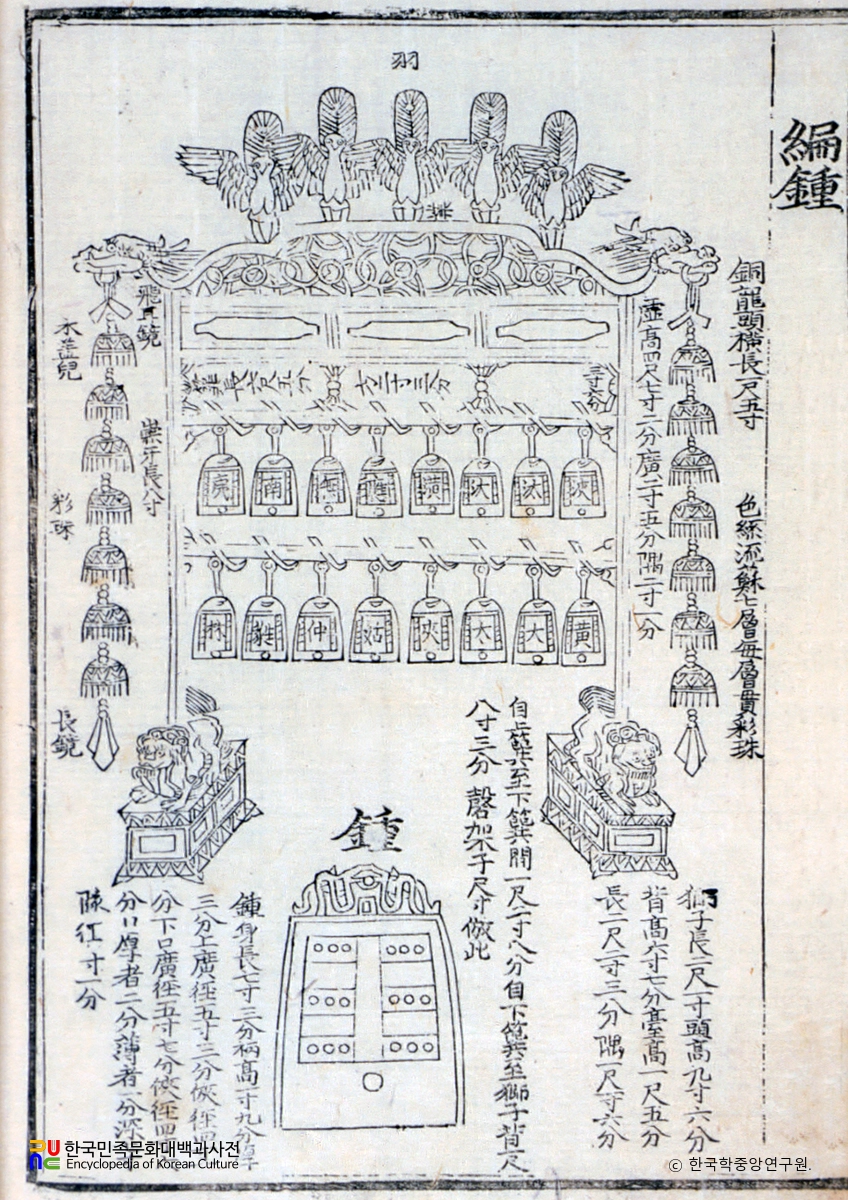 編鍾
羽
銅龍頭橫長一尺五寸
色絲流蘇七層每層貫彩珠
虛高四尺七寸一分廣二寸五分隅二寸一分
飛耳鏡
木羔兒
崇牙長八寸
彩珠
長鏡
長六尺五分
六二寸三分
三寸六分
夷 南 無 應 潢 汏 汰 浹
林 蕤 仲 姑 夾 太 大 黃
獅子長二尺一寸頭高九寸六分
背高六寸七分臺高一尺五分
長二尺二寸三分隅一尺寸六分
自上簨至下簨間一尺二寸八分自下簨至獅子背一尺
八寸三分 磬架子尺寸倣此
鍾
鍾身長七寸三分柄高一寸九分
三分上廣徑五寸三分俠徑四
分下口廣徑五寸七分俠徑四
分口厚者二分薄者一分深
隊徑寸一分
한국민족문화대백과사전
Encyclopedia of Korean Culture
© 한국학중앙연구원.